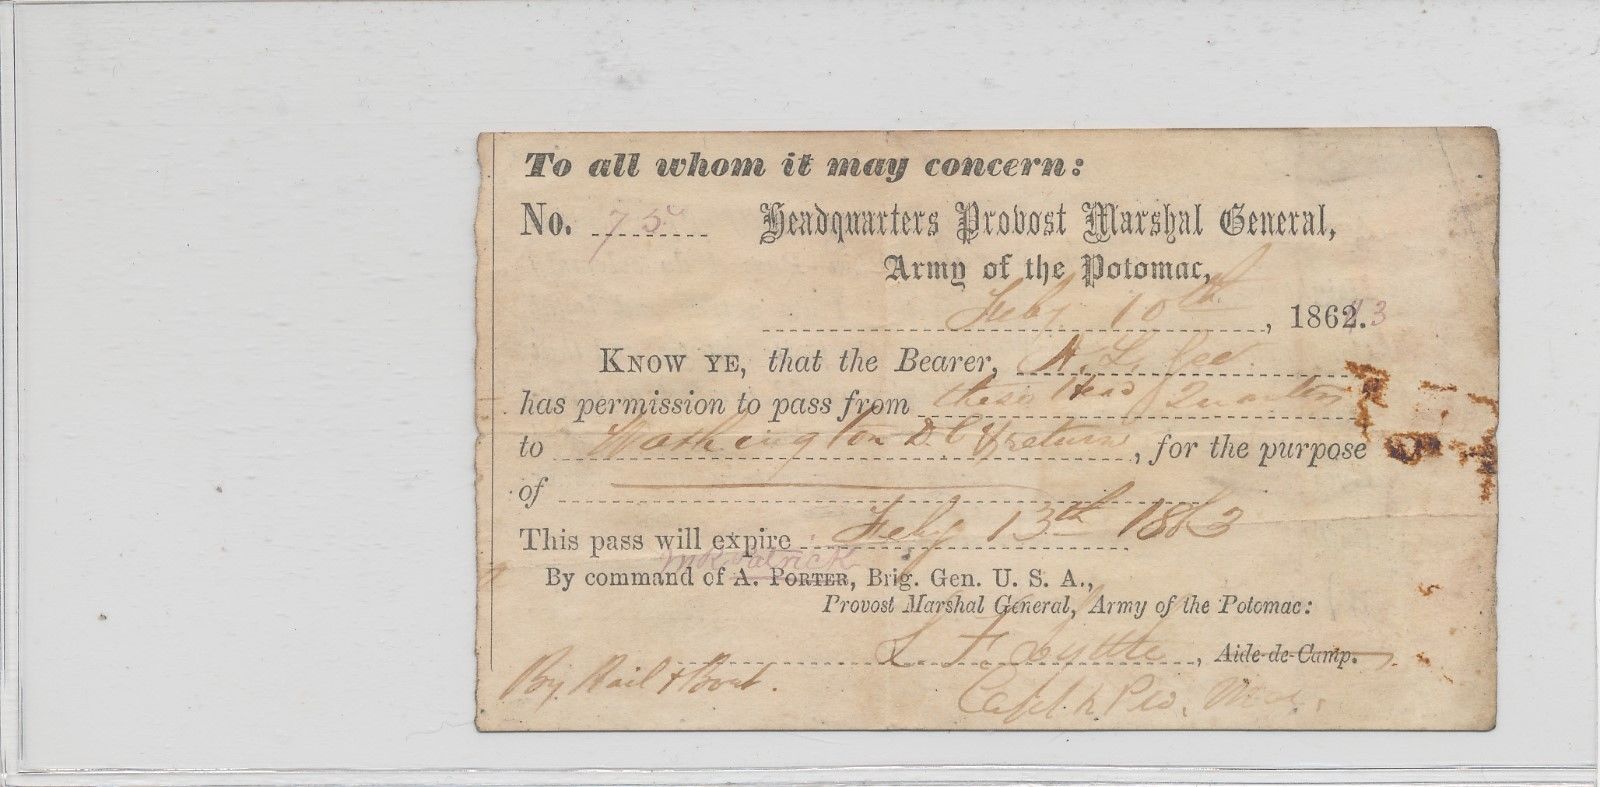 To all whom it may concern:
No. 75 Headquarters Provost Marshal General,
Army of the Potomac,
Feby 10th, 1862.3
KNOW YE, that the Bearer, H. L. Gee
has permission to pass from these Head Quarters
to Washington D.C. & return, for the purpose
of
This pass will expire Feby 13th 1863
Patrick
By command of A. PORTER, Brig. Gen. U. S. A.,
Provost Marshal General, Army of the Potomac:
Aide-de-Camp.
By Rail & Boat.
Capt & Pro. Mar.